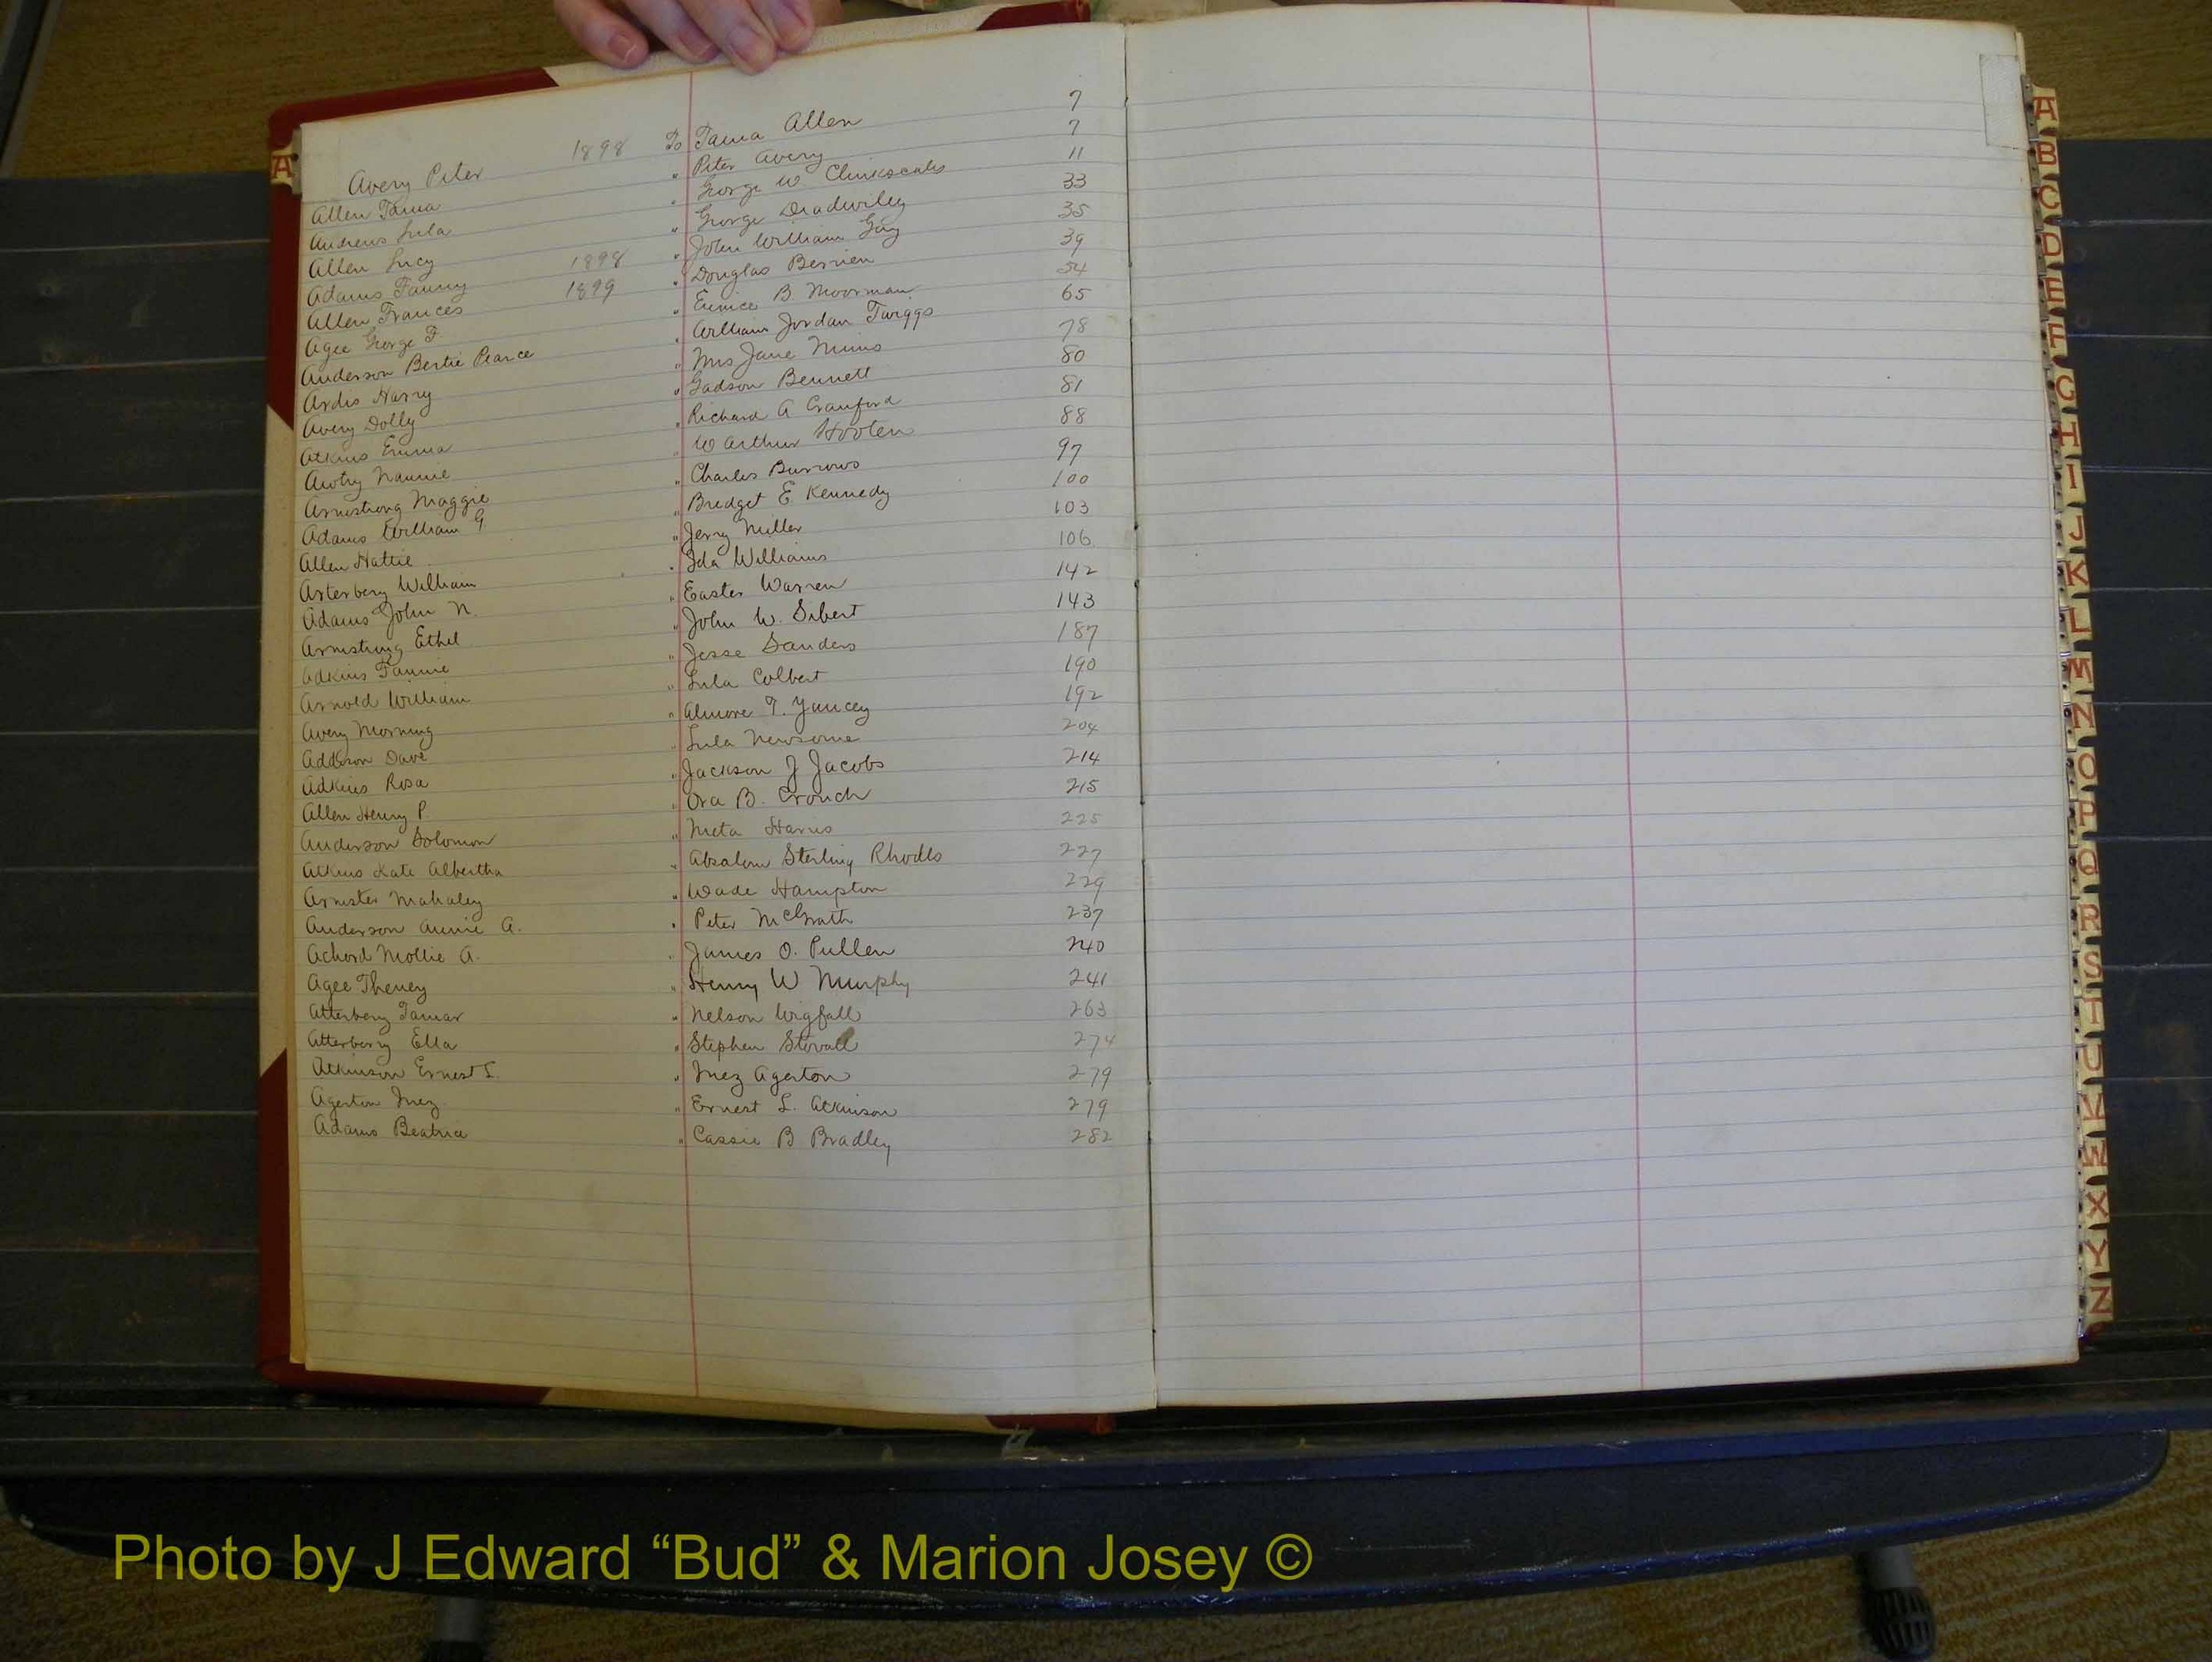 A
Avery Peter 1898 To Tama Allen 7
Allen Tama " Peter Avery 7
Andrews Lula " George W Clinkscales 11
Allen Lucy " George Deadwiley 33
Adams Fanny 1898 " John William Gay 35
Allen Frances 1899 " Douglas Berrien 39
Agee George F. " Eunice B. Moorman 54
Anderson Bertie Pearce " William Jordan Twiggs 65
Ardis Harry " Mrs Jane Mims 78
Avery Dolly " Gadson Bennett 80
Atkins Emma " Richard A Cranford 81
Awtry Nannie " W Arthur Hooten 88
Armstrong Maggie " Charles Burrows 97
Adams William G. " Bridget E. Kennedy 100
Allen Hattie " Jerry Miller 103
Arterbery William " Ida Williams 106
Adams John N. " Easter Warren 142
Armstrong Ethel " John W. Sibert 143
Adkins Fannie " Jesse Sanders 187
Arnold William " Lula Colbert 190
Avery Morning " Almore T. Yancey 192
Addison Dave " Lula Newsome 204
Adkins Rosa " Jackson J Jacobs 214
Allen Henry P. " Ora B. Crouch 215
Anderson Solomon " Meta Harris 225
Atkins Kate Albertha " Absalom Sterling Rhodes 227
Armster Mahaley " Wade Hampton 229
Anderson Annie A. " Peter McGrath 237
Achord Mollie A. " James O. Pullen 240
Agee Theney " Henry W Murphy 241
Atterbery Tamar " Nelson Wigfall 263
Atterberry Ella " Stephen Stovall 274
Atkinson Ernest L. " Inez Agerton 279
Agerton Inez " Ernest L. Atkinson 279
Adams Beatrice " Cassie B Bradley 282
A
B
C
D
E
F
G
H
I
J
K
L
M
N
O
P
Q
R
S
T
U
V
W
X
Y
Z
Photo by J Edward “Bud” & Marion Josey ©